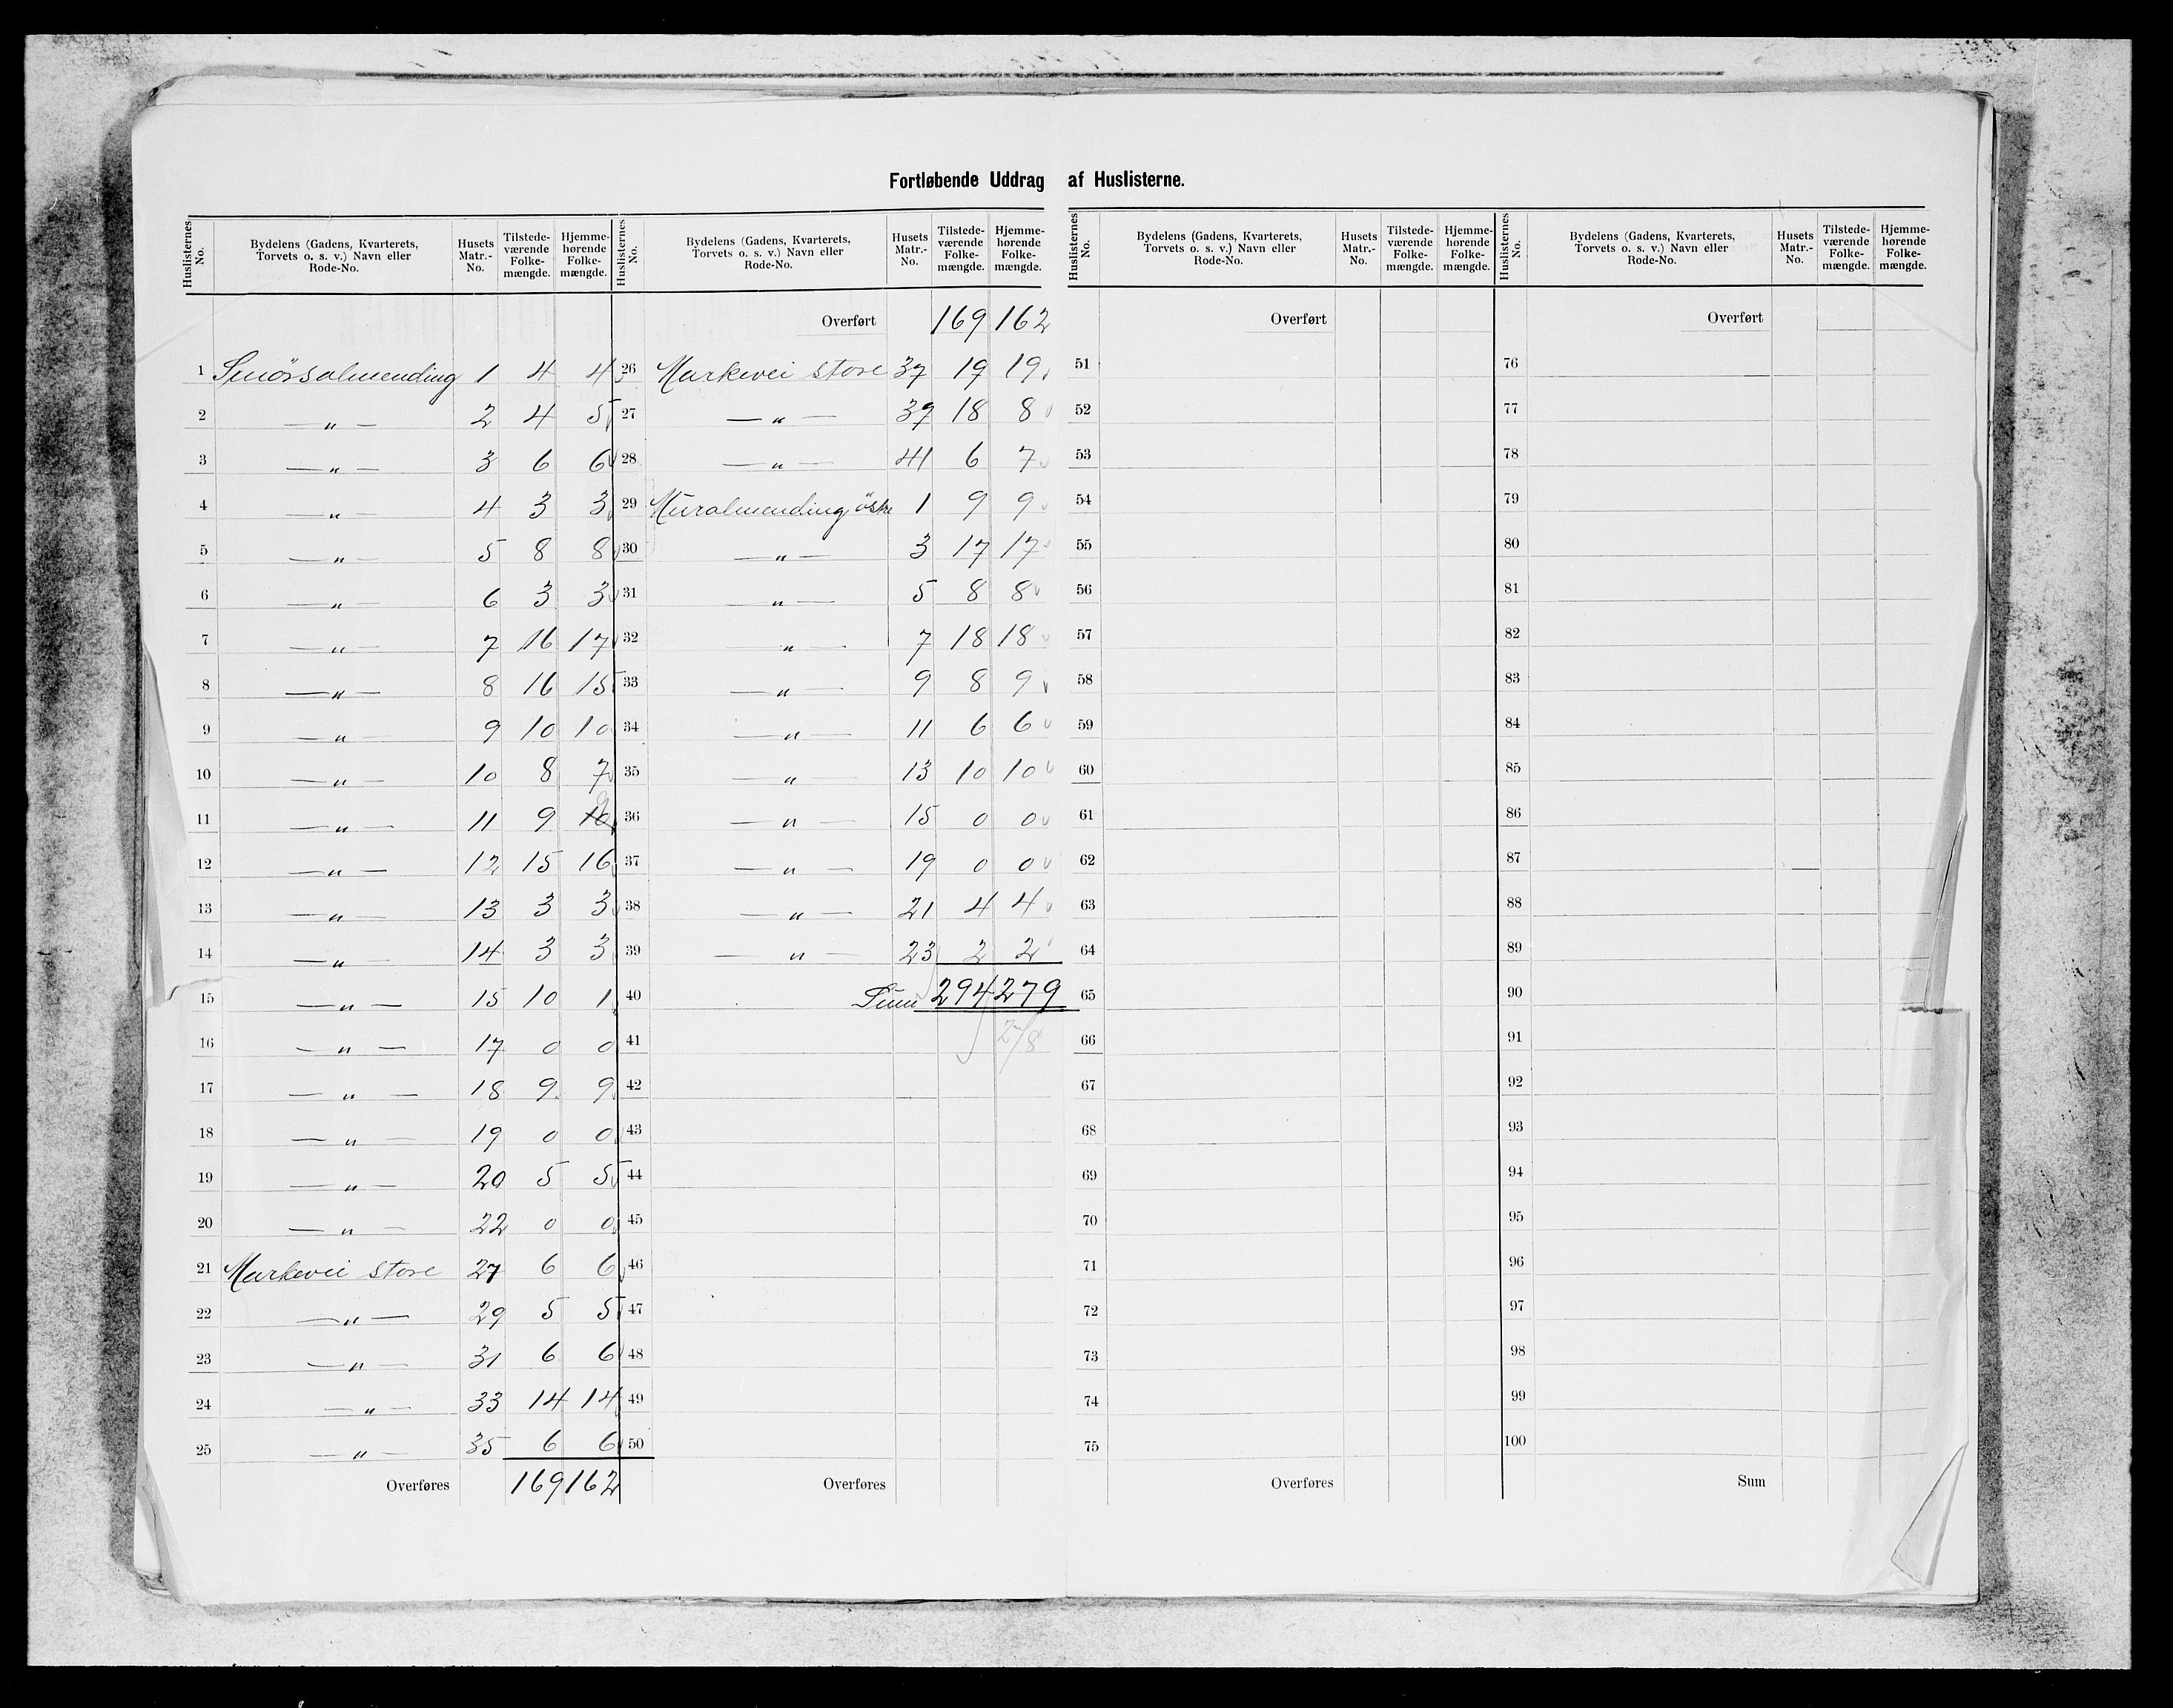 Fortløbende Uddrag af Huslisterne.
Huslisternes No. Bydelens (Gadens, Kvarterets, Torvets o. s. v.) Navn eller Rode-No. Husets Matr.-No. Tilstede-værende Folke-mængde. Hjemme-hørende Folke-mængde.
1 Smörsalmending 1 4 4
2 —„— 2 4 5
3 —„— 3 6 6
4 —„— 4 3 3
5 —„— 5 8 8
6 —„— 6 3 3
7 —„— 7 16 17
8 —„— 8 16 15
9 —„— 9 10 10
10 —„— 10 8 7
11 —„— 11 9 10 9
12 —„— 12 15 16
13 —„— 13 3 3
14 —„— 14 3 3
15 —„— 15 10 1
16 —„— 17 0 0
17 —„— 18 9 9
18 —„— 19 0 0
19 —„— 20 5 5
20 —„— 22 0 0
21 Markevei store 27 6 6
22 —„— 29 5 5
23 —„— 31 6 6
24 —„— 33 14 14
25 —„— 35 6 6
Overføres 169 162
Huslisternes No. Bydelens (Gadens, Kvarterets, Torvets o. s. v.) Navn eller Rode-No. Husets Matr.-No. Tilstede-værende Folke-mængde. Hjemme-hørende Folke-mængde.
Overført 169 162
26 Markevei store 37 19 19
27 —„— 39 18 8
28 —„— 41 6 7
29 Muralmending östre 1 9 9
30 —„— 3 17 17
31 —„— 5 8 8
32 „— 7 18 18
33 —„— 9 8 9
34 —„— 11 6 6
35 —„— 13 10 10
36 —„— 15 0 0
37 —„— 19 0 0
38 —„— 21 4 4
39 —„— 23 2 2
40 Sum 294 279
41 278
42
43
44
45
46
47
48
49
50
Overføres
Huslisternes No. Bydelens (Gadens, Kvarterets, Torvets o. s. v.) Navn eller Rode-No. Husets Matr.-No. Tilstede-værende Folke-mængde. Hjemme-hørende Folke-mængde.
Overført
51
52
53
54
55
56
57
58
59
60
61
62
63
64
65
66
67
68
69
70
71
72
73
74
75
Overføres
Huslisternes No. Bydelens (Gadens, Kvarterets, Torvets o. s. v.) Navn eller Rode-No. Husets Matr.-No. Tilstede-værende Folke-mængde. Hjemme-hørende Folke-mængde.
Overført
76
77
78
79
80
81
82
83
84
85
86
87
88
89
90
91
92
93
94
95
96
97
98
99
100
Sum